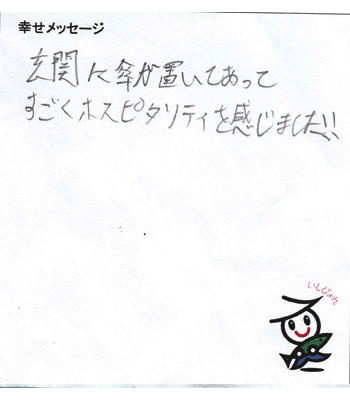 幸せメッセージ
玄関に傘が置いてあって
すごくホスピタリティを感じました!!
いしぴょん